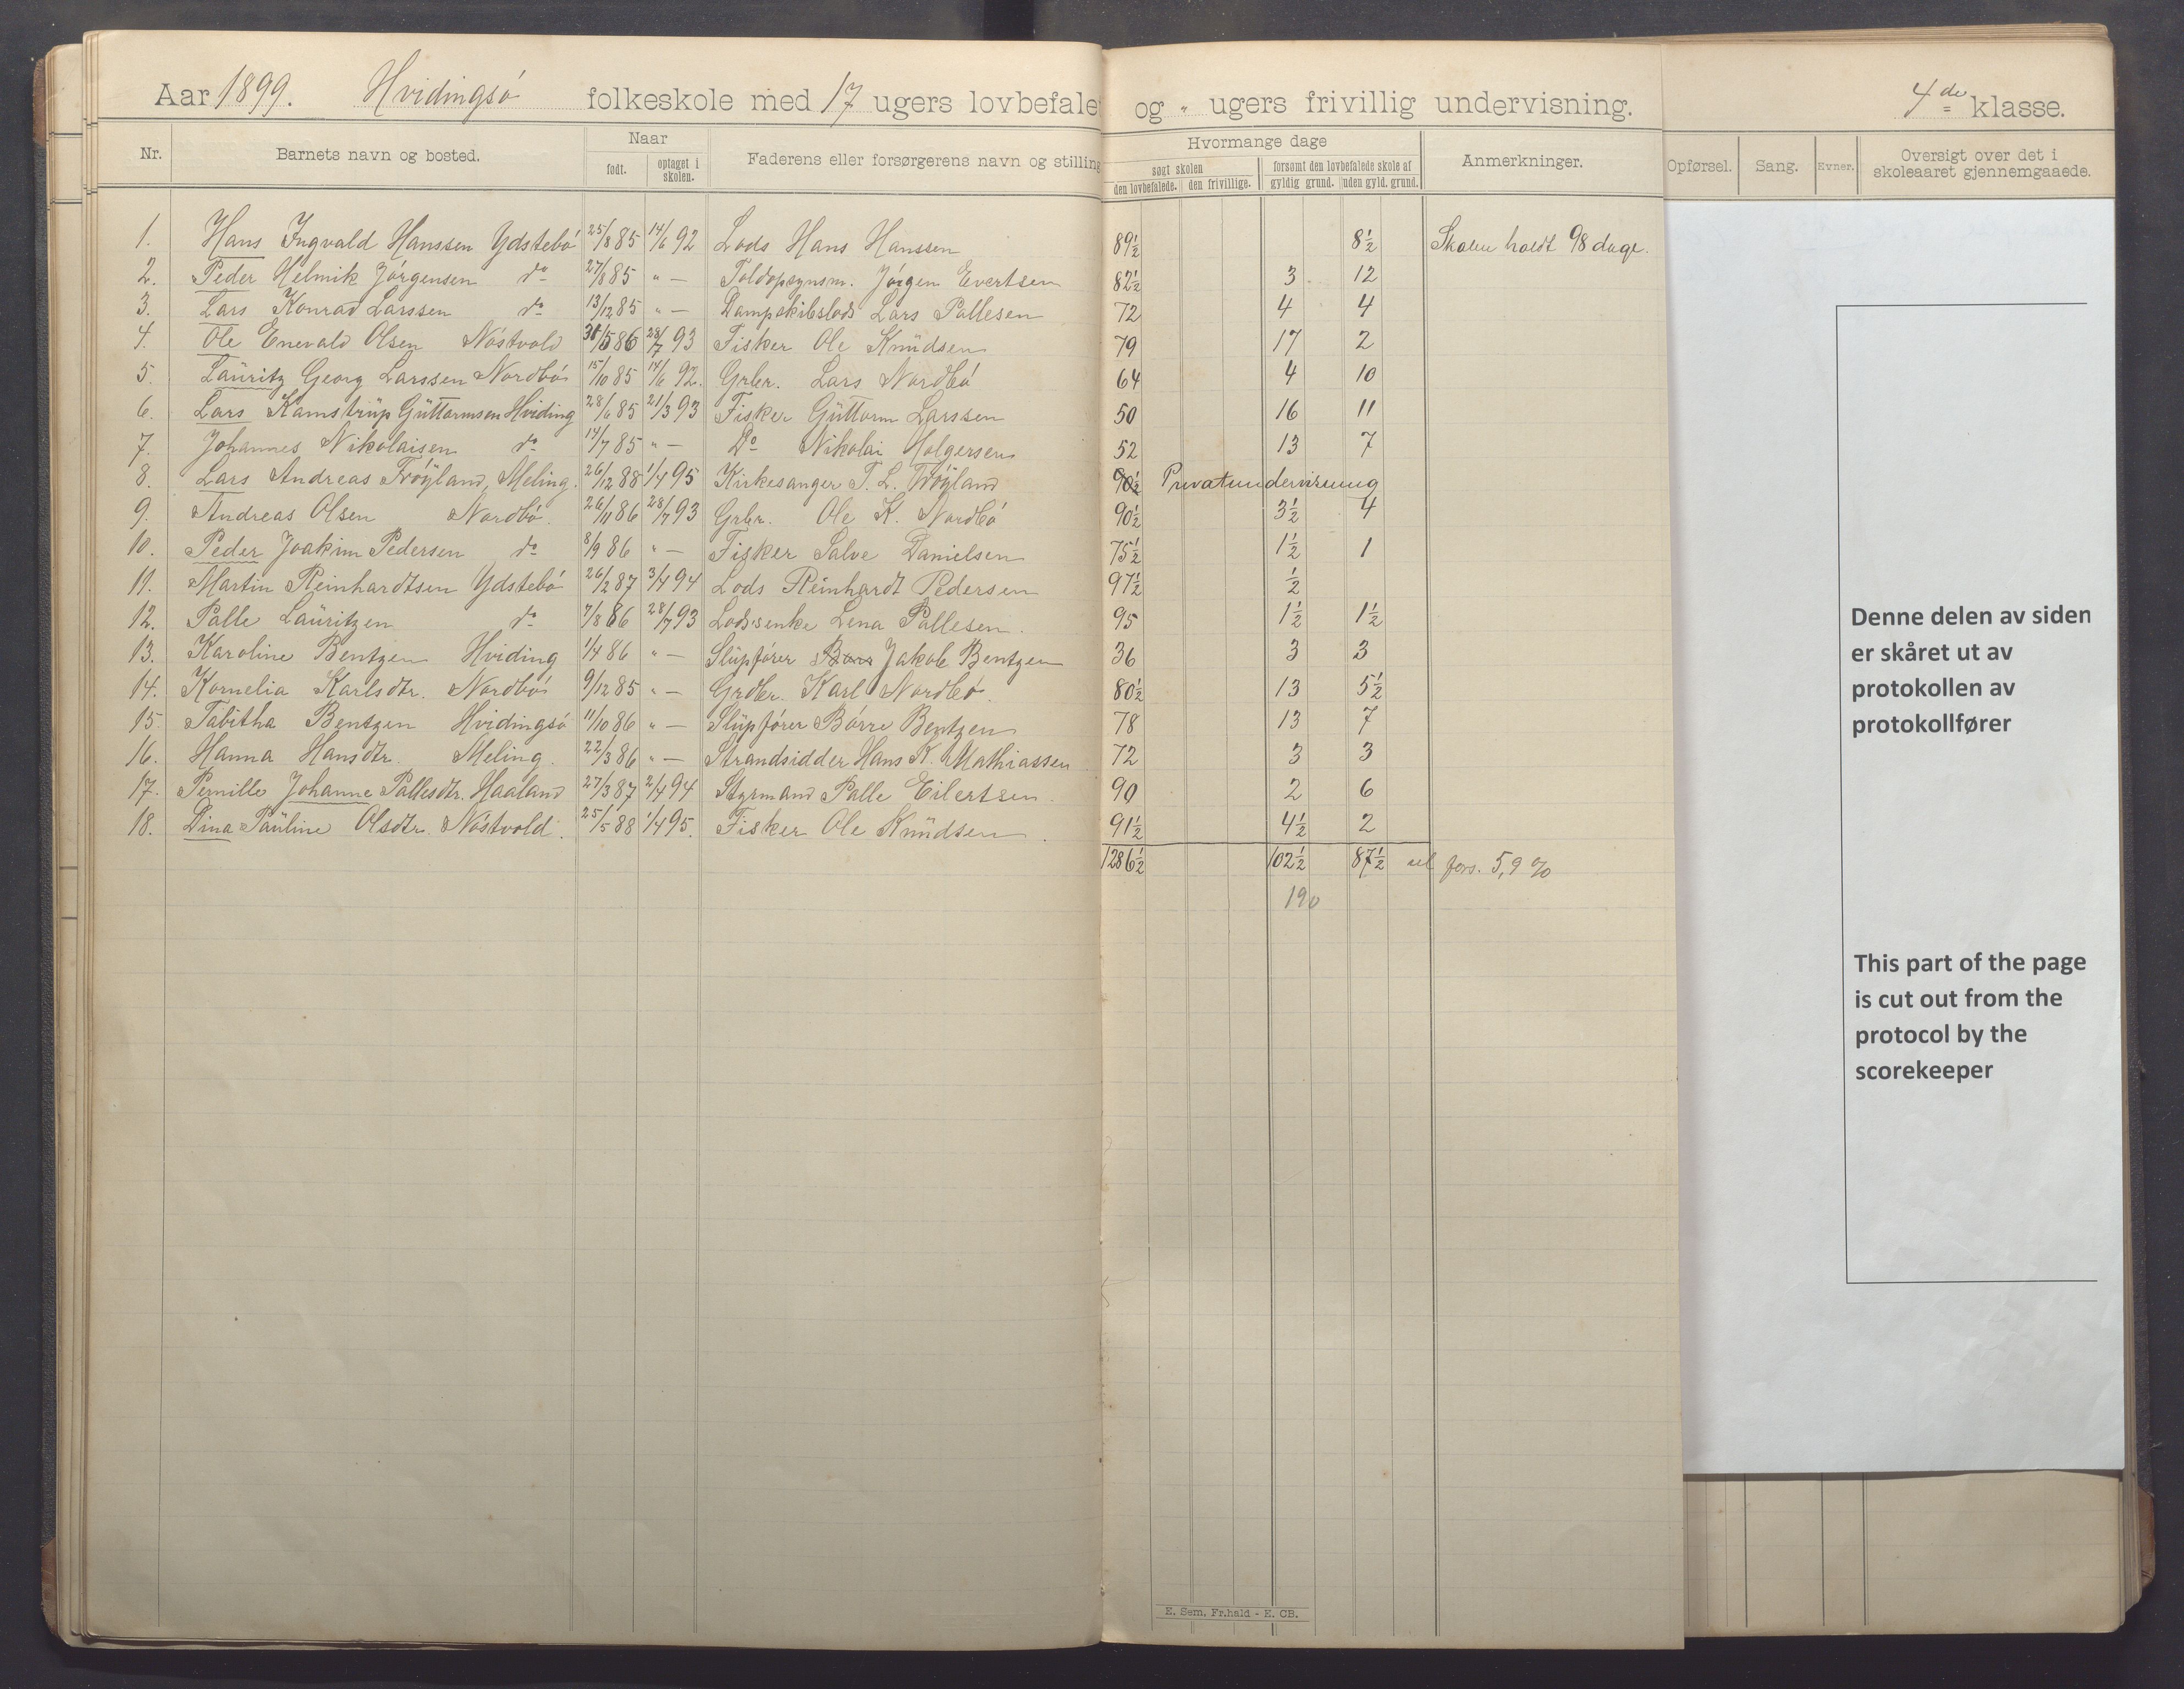 Aar 1899. Hvidingsö folkeskole med 17 ugers lovbefale og „ ugers frivillig undervisning. 4de klasse.
Nr. Barnets navn og bosted. Naar født. optaget i skolen. Faderens eller forsørgerens navn og stilling Hvormange dage søgt skolen den lovbefalede. den frivillige. forsømt den lovbefalede skole af gyldig grund. uden gyld. grund. Anmerkninger. Opførsel. Sang. Evner. Oversigt over det i skoleaaret gjennemgaaede.
1. Hans Ingvald Hanssen Ydstebö 25/8 85 14/6 92 Lods Hans Hanssen 89½ 8½ Skolen holdt 98 dage.
2. Peder Helmik Jörgensen do 27/8 85 „ — Toldopsynsm. Jörgen Evertsen 82½ 3 12
3. Lars Konrad Larssen do 13/12 85 „ — Dampskibslods Lars Pallesen 72 4 4
4. Ole Enevald Olsen Nöstvold 31/5 86 28/7 93 Fisker Ole Knudsen 79 17 2
5. Lauritz Georg Larssen Nordbö 15/10 85 14/6 92. Grbr. Lars Nordbö 64 4 10
6. Lars Kamstrup Guttormsen Hviding 28/6 85 21/3 93 Fisker Guttorm Larssen 50 16 11
7. Johannes Nikolaisen do 14/7 85 „ — Do Nikolai Holgersen 52 13 7
8. Lars Andreas Tröyland, Meling. 26/12 88 1/4 95 Kirkesanger T. L. Tröyland 90½ Privatundervisning
9. Andreas Olsen Nordbö. 26/11 86 28/7 93 Grbr. Ole K. Nordbö 90½ 3½ 4
10. Peder Joakim Pedersen do 8/9 86 „ — Fisker Salve Danielsen 75½ 1½ 1
11. Martin Reinhardtsen Ydstebö 26/2 87 3/4 94 Lods Reinhardt Pedersen 97½ ½
12. Palle Lauritzen do 7/8 86 28/7 93 Lodsenke Lena Pallesen. 95 1½ 1½
13. Karoline Bentzen Hviding 1/4 86 „ — Slupfører Jakob Bentzen 36 3 3
14. Kornelia Karlsdtr. Nordbö 9/12 85 „ — Grdbr. Karl Nordbö. 80½ 13 5½
15. Tabitha Bentzen Hvidingsö 11/10 86 „ — Slupfører Börre Bentzen 78 13 7
16. Hanna Hansdtr. Meling. 22/3 86 „ — Strandsidder Hans K. Mathiassen 72 3 3
17. Pernille Johanne Pallesdtr. Haaland 27/3 87 2/4 94 Styrmand Palle Eilertsen. 90 2 6
18. Dina Pauline Olsdtr. Nöstvold. 25/5 88 1/4 95. Fisker Ole Knudsen 91½ 4½ 2
1286½ 102½ 87½ ul fors. 5,9 %
190
E. Sem, Fr.hald - E. CB.
Denne delen av siden
er skåret ut av
protokollen av
protokollfører
This part of the page
is cut out from the
protocol by the
scorekeeper